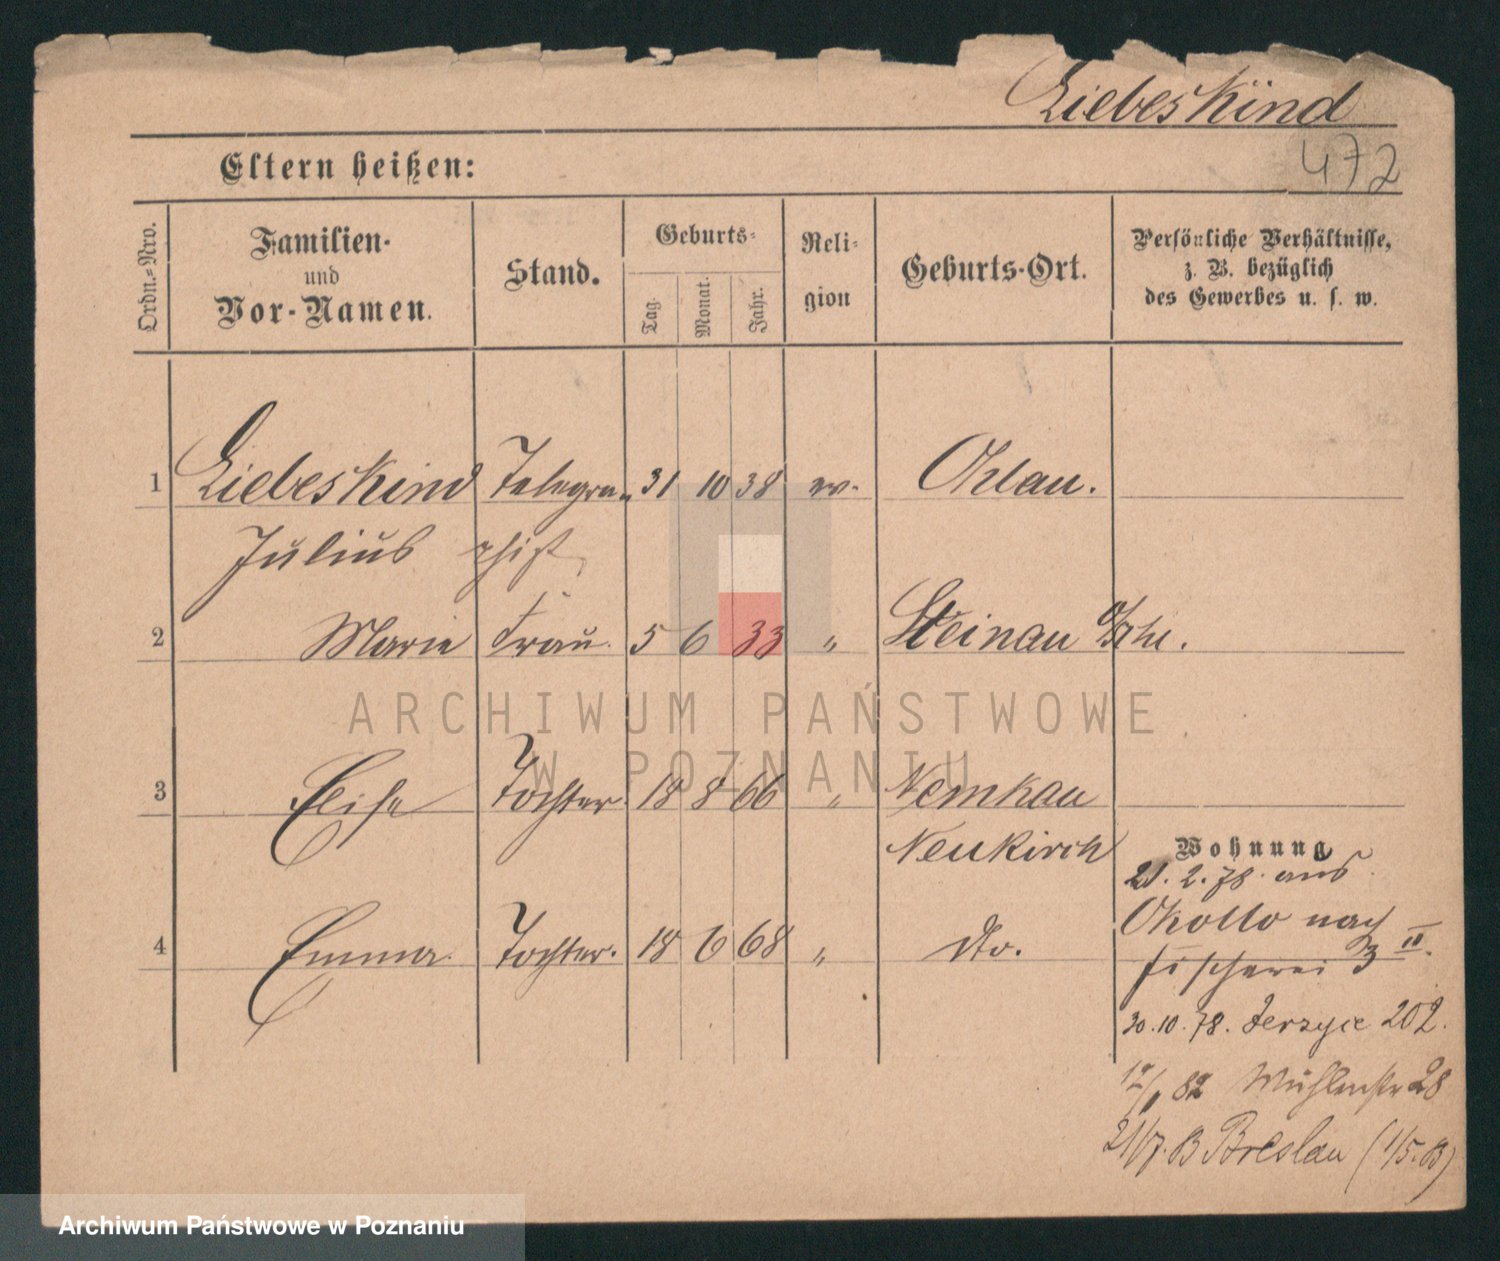 Liebeskind
472
Eltern heißen:
Ordn.=Nro.
Familien-
und
Vor-Namen.
Stand.
Geburts-
Tag.
Monat.
Jahr.
Reli-
gion
Geburts-Ort.
Persönliche Verhältnisse,
z. B. bezüglich
des Gewerbes u. s. w.
1 Liebeskind Telegra- 31 10 38 ev. Ohlau.
Julius phist
2 Marie Frau. 5 6 33 " Steinau
3 Elise Tochter. 18 8 66 "
Neukirch
Wohnung
21. 2. 78. aus
4 Emma. Tochter. 18 6 68 " dto.
Okollo nach
Fischerei 3 II.
30.10.78. Jerzyce 202.
82 Mühlenstr 28
21/7. B Breslau (1/5. B)
ARCHIWUM PAŃSTWOWE
W POZNANIU
Archiwum Państwowe w Poznaniu